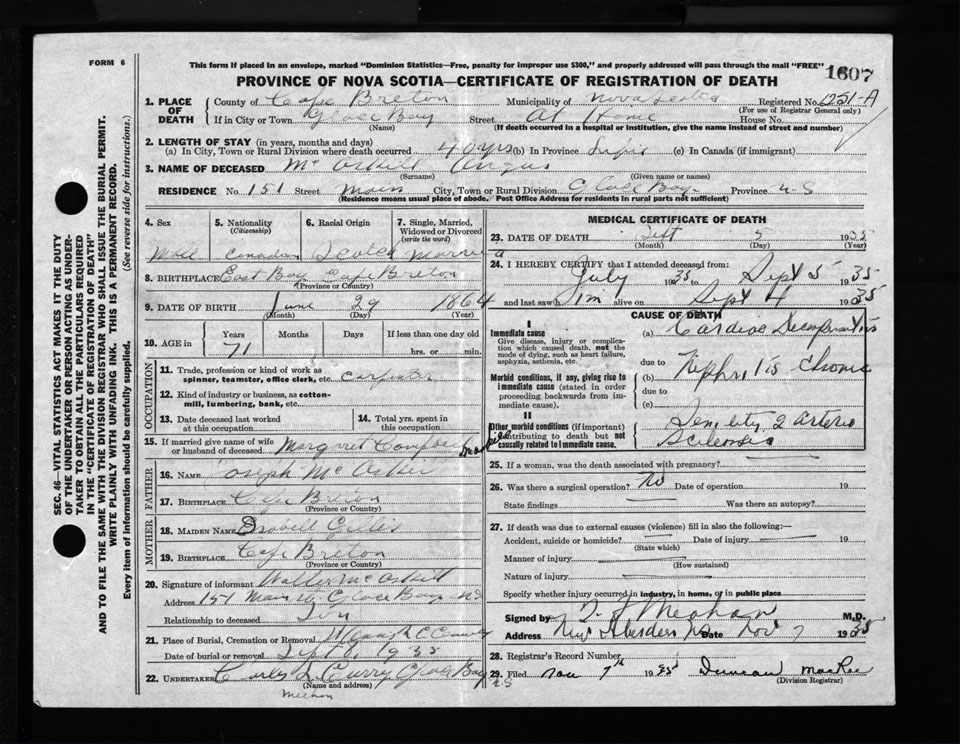 FORM 6
This form if placed in an envelope, marked "Dominion Statistics—Free, penalty for improper use $300," and properly addressed will pass through the mail "FREE"
1607
PROVINCE OF NOVA SCOTIA—CERTIFICATE OF REGISTRATION OF DEATH
SEC. 46—VITAL STATISTICS ACT MAKES IT THE DUTY
OF THE UNDERTAKER OR PERSON ACTING AS UNDER-
TAKER TO OBTAIN ALL THE PARTICULARS REQUIRED
IN THE "CERTIFICATE OF REGISTRATION OF DEATH"
AND TO FILE THE SAME WITH THE DIVISION REGISTRAR WHO SHALL ISSUE THE BURIAL PERMIT.
WRITE PLAINLY WITH UNFADING INK. THIS IS A PERMANENT RECORD.
Every item of information should be carefully supplied. (See reverse side for instructions.)
1. PLACE OF DEATH
County of Cape Breton Municipality of Nova Scotia Registered No. 1251-A
(For use of Registrar General only)
If in City or Town Glace Bay Street At Home House No.
(Name) (If death occurred in a hospital or institution, give the name instead of street and number)
2. LENGTH OF STAY (in years, months and days)
(a) In City, Town or Rural Division where death occurred 40 yrs (b) In Province (c) In Canada (if immigrant)
3. NAME OF DECEASED Angus
(Surname) (Given name or names)
RESIDENCE No. 151 Street Main City, Town or Rural Division Glace Bay Province N-S
(Residence means usual place of abode. Post Office Address for residents in rural parts not sufficient)
4. Sex Male
5. Nationality (Citizenship) Canadian
6. Racial Origin Scotch
7. Single, Married, Widowed or Divorced (write the word) Married
8. BIRTHPLACE East Bay Cape Breton
(Province or Country)
9. DATE OF BIRTH June 29 1864
(Month) (Day) (Year)
10. AGE in Years Months Days If less than one day old
71 hrs. or min.
OCCUPATION
11. Trade, profession or kind of work as spinner, teamster, office clerk, etc. Carpenter
12. Kind of industry or business, as cotton-mill, lumbering, bank, etc.
13. Date deceased last worked at this occupation
14. Total yrs. spent in this occupation
15. If married give name of wife or husband of deceased Margaret Campbell
FATHER
16. NAME Joseph
17. BIRTHPLACE Cape Breton
(Province or Country)
MOTHER
18. MAIDEN NAME Isabell Gillis
19. BIRTHPLACE Cape Breton
(Province or Country)
20. Signature of informant Walter
Address 151 Main St Glace Bay NS
Relationship to deceased Son
21. Place of Burial, Cremation or Removal
Date of burial or removal Sept 8 1935
22. UNDERTAKER Curry Glace Bay
(Name and address) N-S
Meehan
MEDICAL CERTIFICATE OF DEATH
23. DATE OF DEATH Sept 5 1935
(Month) (Day) (Year)
24. I HEREBY CERTIFY that I attended deceased from:
July 1935 to Sept 5 1935
and last saw him alive on Sept 4 1935
CAUSE OF DEATH
I
Immediate cause
Give disease, injury or complication which caused death, not the mode of dying, such as heart failure, asphyxia, asthenia, etc.
(a) Cardiac Decompensation
due to
Morbid conditions, if any, giving rise to immediate cause (stated in order proceeding backwards from immediate cause).
(b) Nephritis Chronic
due to
(c)
II
Other morbid conditions (if important) contributing to death but not causally related to immediate cause.
Senility & Arterio
Sclerosis
25. If a woman, was the death associated with pregnancy?
26. Was there a surgical operation? No Date of operation 19
State findings Was there an autopsy?
27. If death was due to external causes (violence) fill in also the following:—
Accident, suicide or homicide? Date of injury 19
(State which)
Manner of injury
(How sustained)
Nature of injury
Specify whether injury occurred in industry, in home, or in public place
Signed by Meehan M.D.
Address New Aberdeen NS Date Nov 7 1935
28. Registrar's Record Number
29. Filed Nov 7th 1935 Duncan MacRae
(Division Registrar)